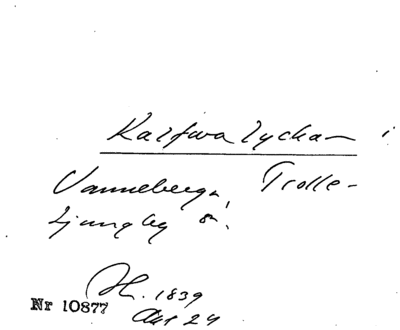 Kalfwa lyckan i
Vanneberga, Trolle-
Ljungby sn.
H. 1839
Akt 24
Nr 10877